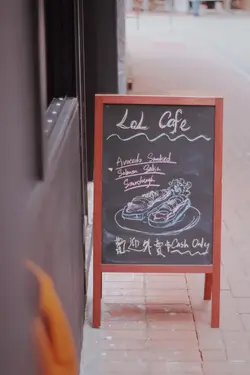 LoL Cafe
Avocado Smoked
Salmon Salsa
Sourdough
歡迎外賣 Cash Only